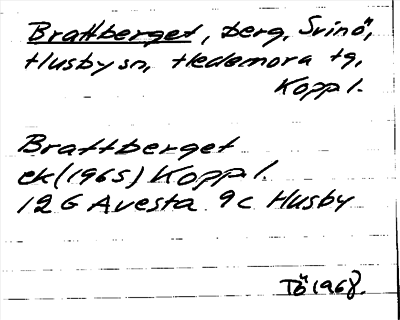 Brattberget, berg, Svinö,
Husby sn, Hedemora tg,
Kopp l.
Brattberget
ek (1965) Kopp l.
12 G Avesta 9 c Husby
TÖ 1968.